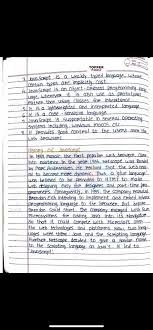 TOPPER
3. JavaScript is a weakly typed language, where
certain types are implicitly cast.
4. JavaScript is an object-oriented programming
language. Whenever it is also use as prototypes
rather than using classes for inheritance
5. It is a lightweight and interpreted language.
6. It is a case-sensitive language.
7. JavaScript is supportable in several operating
systems including windows macOS etc.
8. It provides good control to the users over the
web browsers.
History of JavaScript
In 1993 Mosaic, the first popular web browser, came
into existence. In the year 1994 Netscape was found
by Marc Andreessen. He realized that the web need
to become more dynamic. Thus, a 'glue language'
was believed to be provided to HTML to make
web designing easy for designers and part-time
programmers. Consequently, in 1995, the company recruited
Brendan Eich intending to implement and embed scheme
programming language to the browser. But before
Brendan could start, the company merged with Sun
Microsystems for adding Java into its Navigator
so that it could compete with Microsoft over
the web technologies and platforms. Now, two
languages were there: Java and the scripting language.
Further Netscape decided to give a similar name
to the scripting language as Java's. It led to
'JavaScript'.